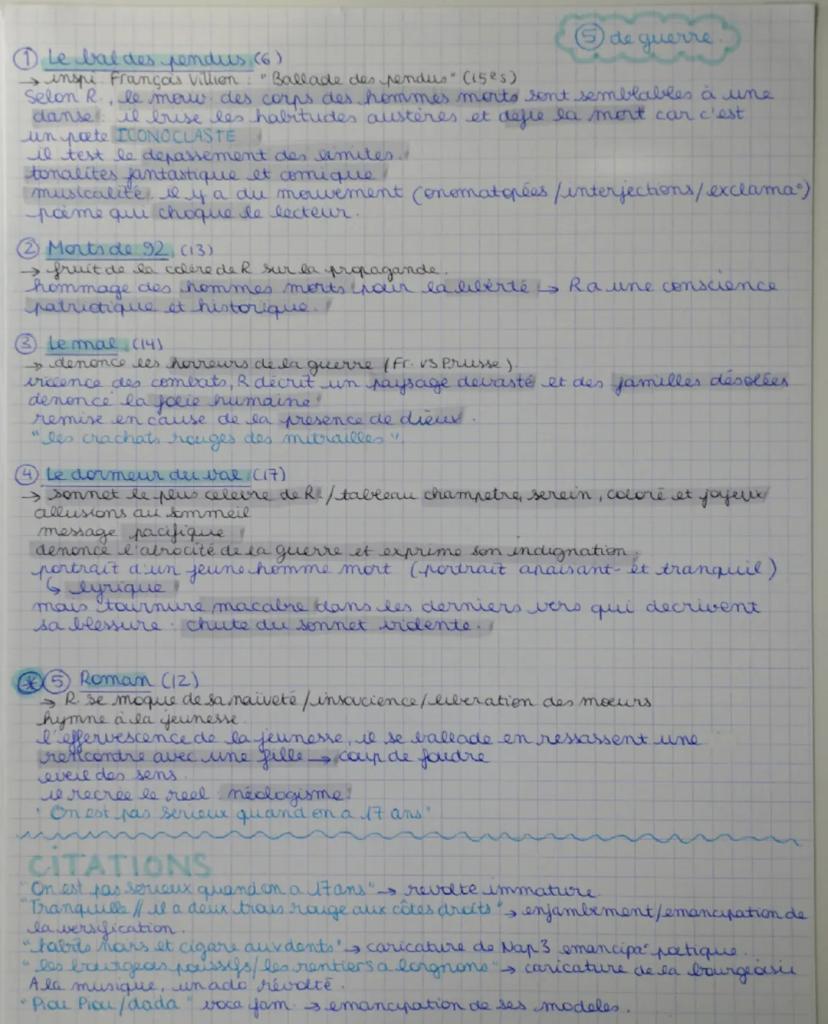 ⑤ de guerre.
① Le bal des pendus (6)
→ inspi François Villion : "Ballade des pendus" (15e s)
Selon R., le mouv. des corps des hommes morts sont semblables à une
danse. il brise les habitudes austères et défie la mort car c'est
un poète ICONOCLASTE
il test le dépassement des limites.
tonalités fantastique et comique
musicalité. il y a du mouvement (onomatopées/interjections/exclama°)
poème qui choque le lecteur.
② Morts de 92 (13)
→ fruit de la colère de R sur la propagande.
hommage des hommes morts pour la liberté ↳ R a une conscience
patriotique et historique.
③ Le mal (14)
→ denonce les horreurs de la guerre (Fr. vs Prusse)
violence des combats, R décrit un paysage devasté et des familles désolées
dénonce la folie humaine
remise en cause de la présence de dieux.
"les crachats rouges des mitrailles".
④ Le dormeur du val (17)
→ sonnet le plus celebre de R / tableau champetre, serein, coloré et joyeux
allusions au sommeil
message pacifique
denonce l'atrocité de la guerre et exprime son indignation,
portrait d'un jeune homme mort (portrait apaisant et tranquil)
↳ lyrique
mais tournure macabre dans les derniers vers qui decrivent
sa blessure : chute du sonnet violente.
* ⑤ Roman (12)
→ R. se moque de sa naiveté/insoucience/liberation des moeurs
hymne à la jeunesse
l'effervescence de la jeunesse, il se ballade en ressassent une
rencontre avec une fille → coup de foudre
eveil des sens.
il recrée le reel néologisme!
"On est pas serieux quand on a 17 ans"
CITATIONS
"On est pas serieux quand on a 17 ans" → revolte immature
"Tranquille // il a deux trous rouge aux côtés droits" → enjambement/emancipation de
la versification.
"habits noirs et cigare aux dents" → caricature de Nap 3 emancipa° poétique.
"les bourgeois poussifs/les rentiers a lorgnons" → caricature de la bourgeoisie
A la musique, un ado révolté.
"Piou Piou/dada" voca fam. → emancipation de ses modeles.